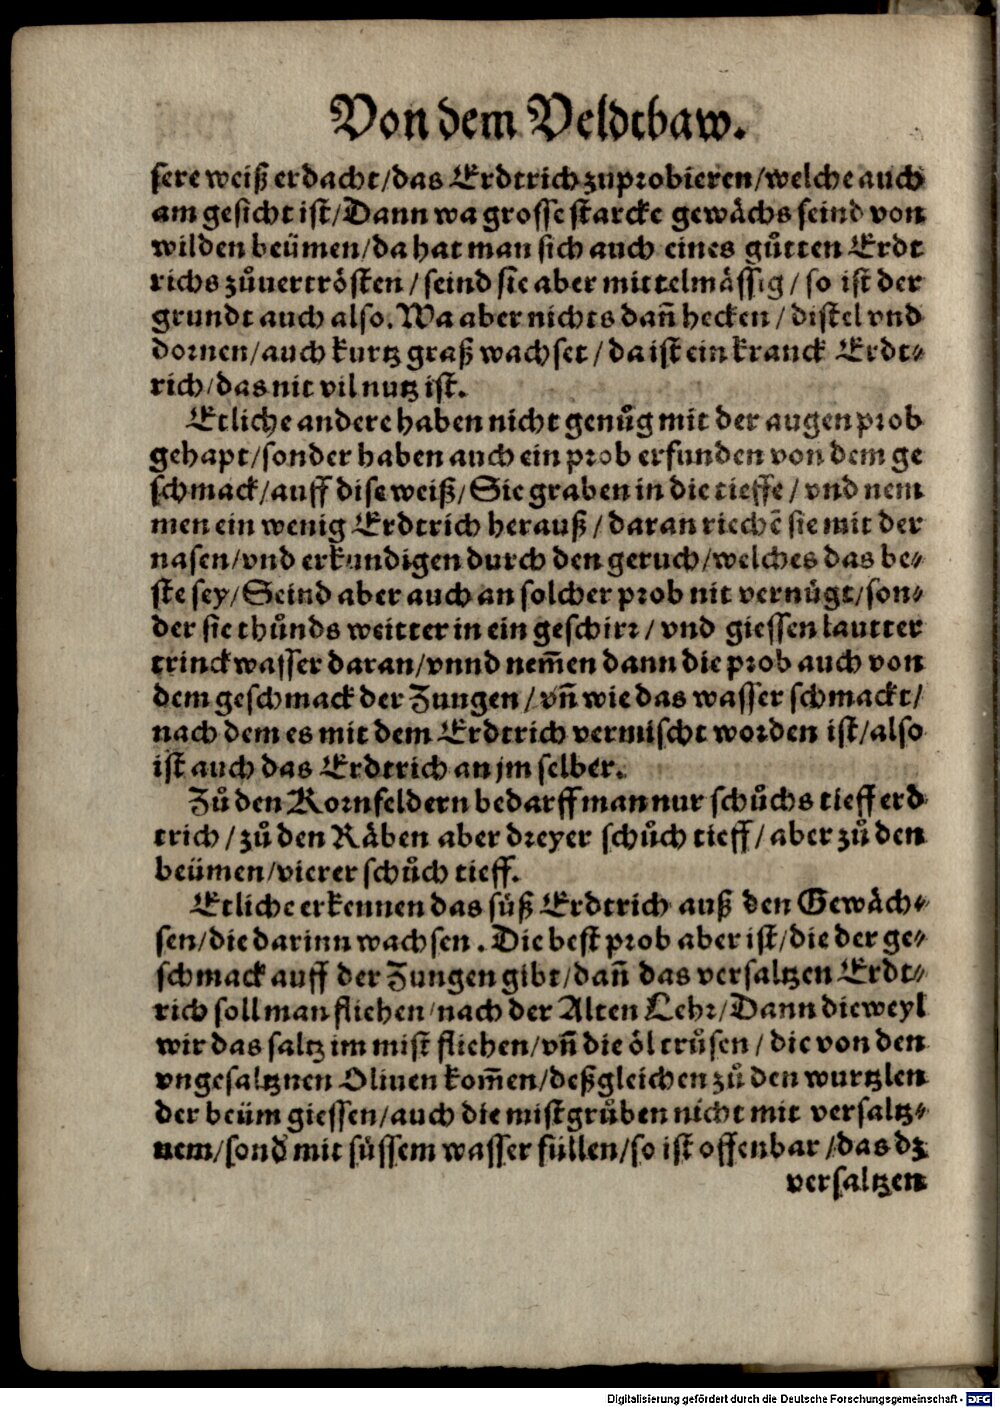 Von dem Veldtbaw.
sere weiß erdacht/das Erdtrich zuprobieren/welche auch
am gesicht ist/Dann wa grosse starcke gewächs seind von
wilden beümen/da hat man sich auch eines gůtten Erdt
richs zůuertrösten/seind sie aber mittelmässig/so ist der
grundt auch also. Wa aber nichts dañ hecken/distel vnd
dornen/auch kurtz graß wachset/da ist ein kranck Erdt⸗
rich/das nit vil nutz ist.
Etliche andere haben nicht genůg mit der augen prob
gehapt/sonder haben auch ein prob erfunden von dem ge
schmack/auff dise weiß/Sie graben in die tieffe/vnd nem
men ein wenig Erdtrich herauß/daran riechē sie mit der
nasen/vnd erkundigen durch den geruch/welches das be⸗
ste sey/Seind aber auch an solcher prob nit vernůgt/son⸗
der sie thůnds weitter in ein geschirr/vnd giessen lautter
trinckwasser daran/vnnd nem̃en dann die prob auch von
dem geschmack der Zungen/vñ wie das wasser schmackt/
nach dem es mit dem Erdtrich vermischt worden ist/also
ist auch das Erdtrich an jm selber.
Zů den Kornfeldern bedarff man nur schůchs tieff erd
trich/zů den Räben aber dreyer schůch tieff/aber zů den
beümen/vierer schůch tieff.
Etliche erkennen das süß Erdtrich auß den Gewäch⸗
sen/die darinn wachsen. Die best prob aber ist/die der ge⸗
schmack auff der Zungen gibt/dañ das versaltzen Erdt⸗
rich soll man fliehen/nach der Alten Lehr/Dann dieweyl
wir das saltz im mist fliehen/vñ die öl trůsen/die von den
vngesaltznen Oliuen kom̃en/deßgleichen zů den wurtzlen
der beüm giessen/auch die mistgrůben nicht mit versaltz⸗
nem/sond̕ mit süssem wasser füllen/so ist offenbar/das dz
versaltzen
Digitalisierung gefördert durch die Deutsche Forschungsgemeinschaft - DFG